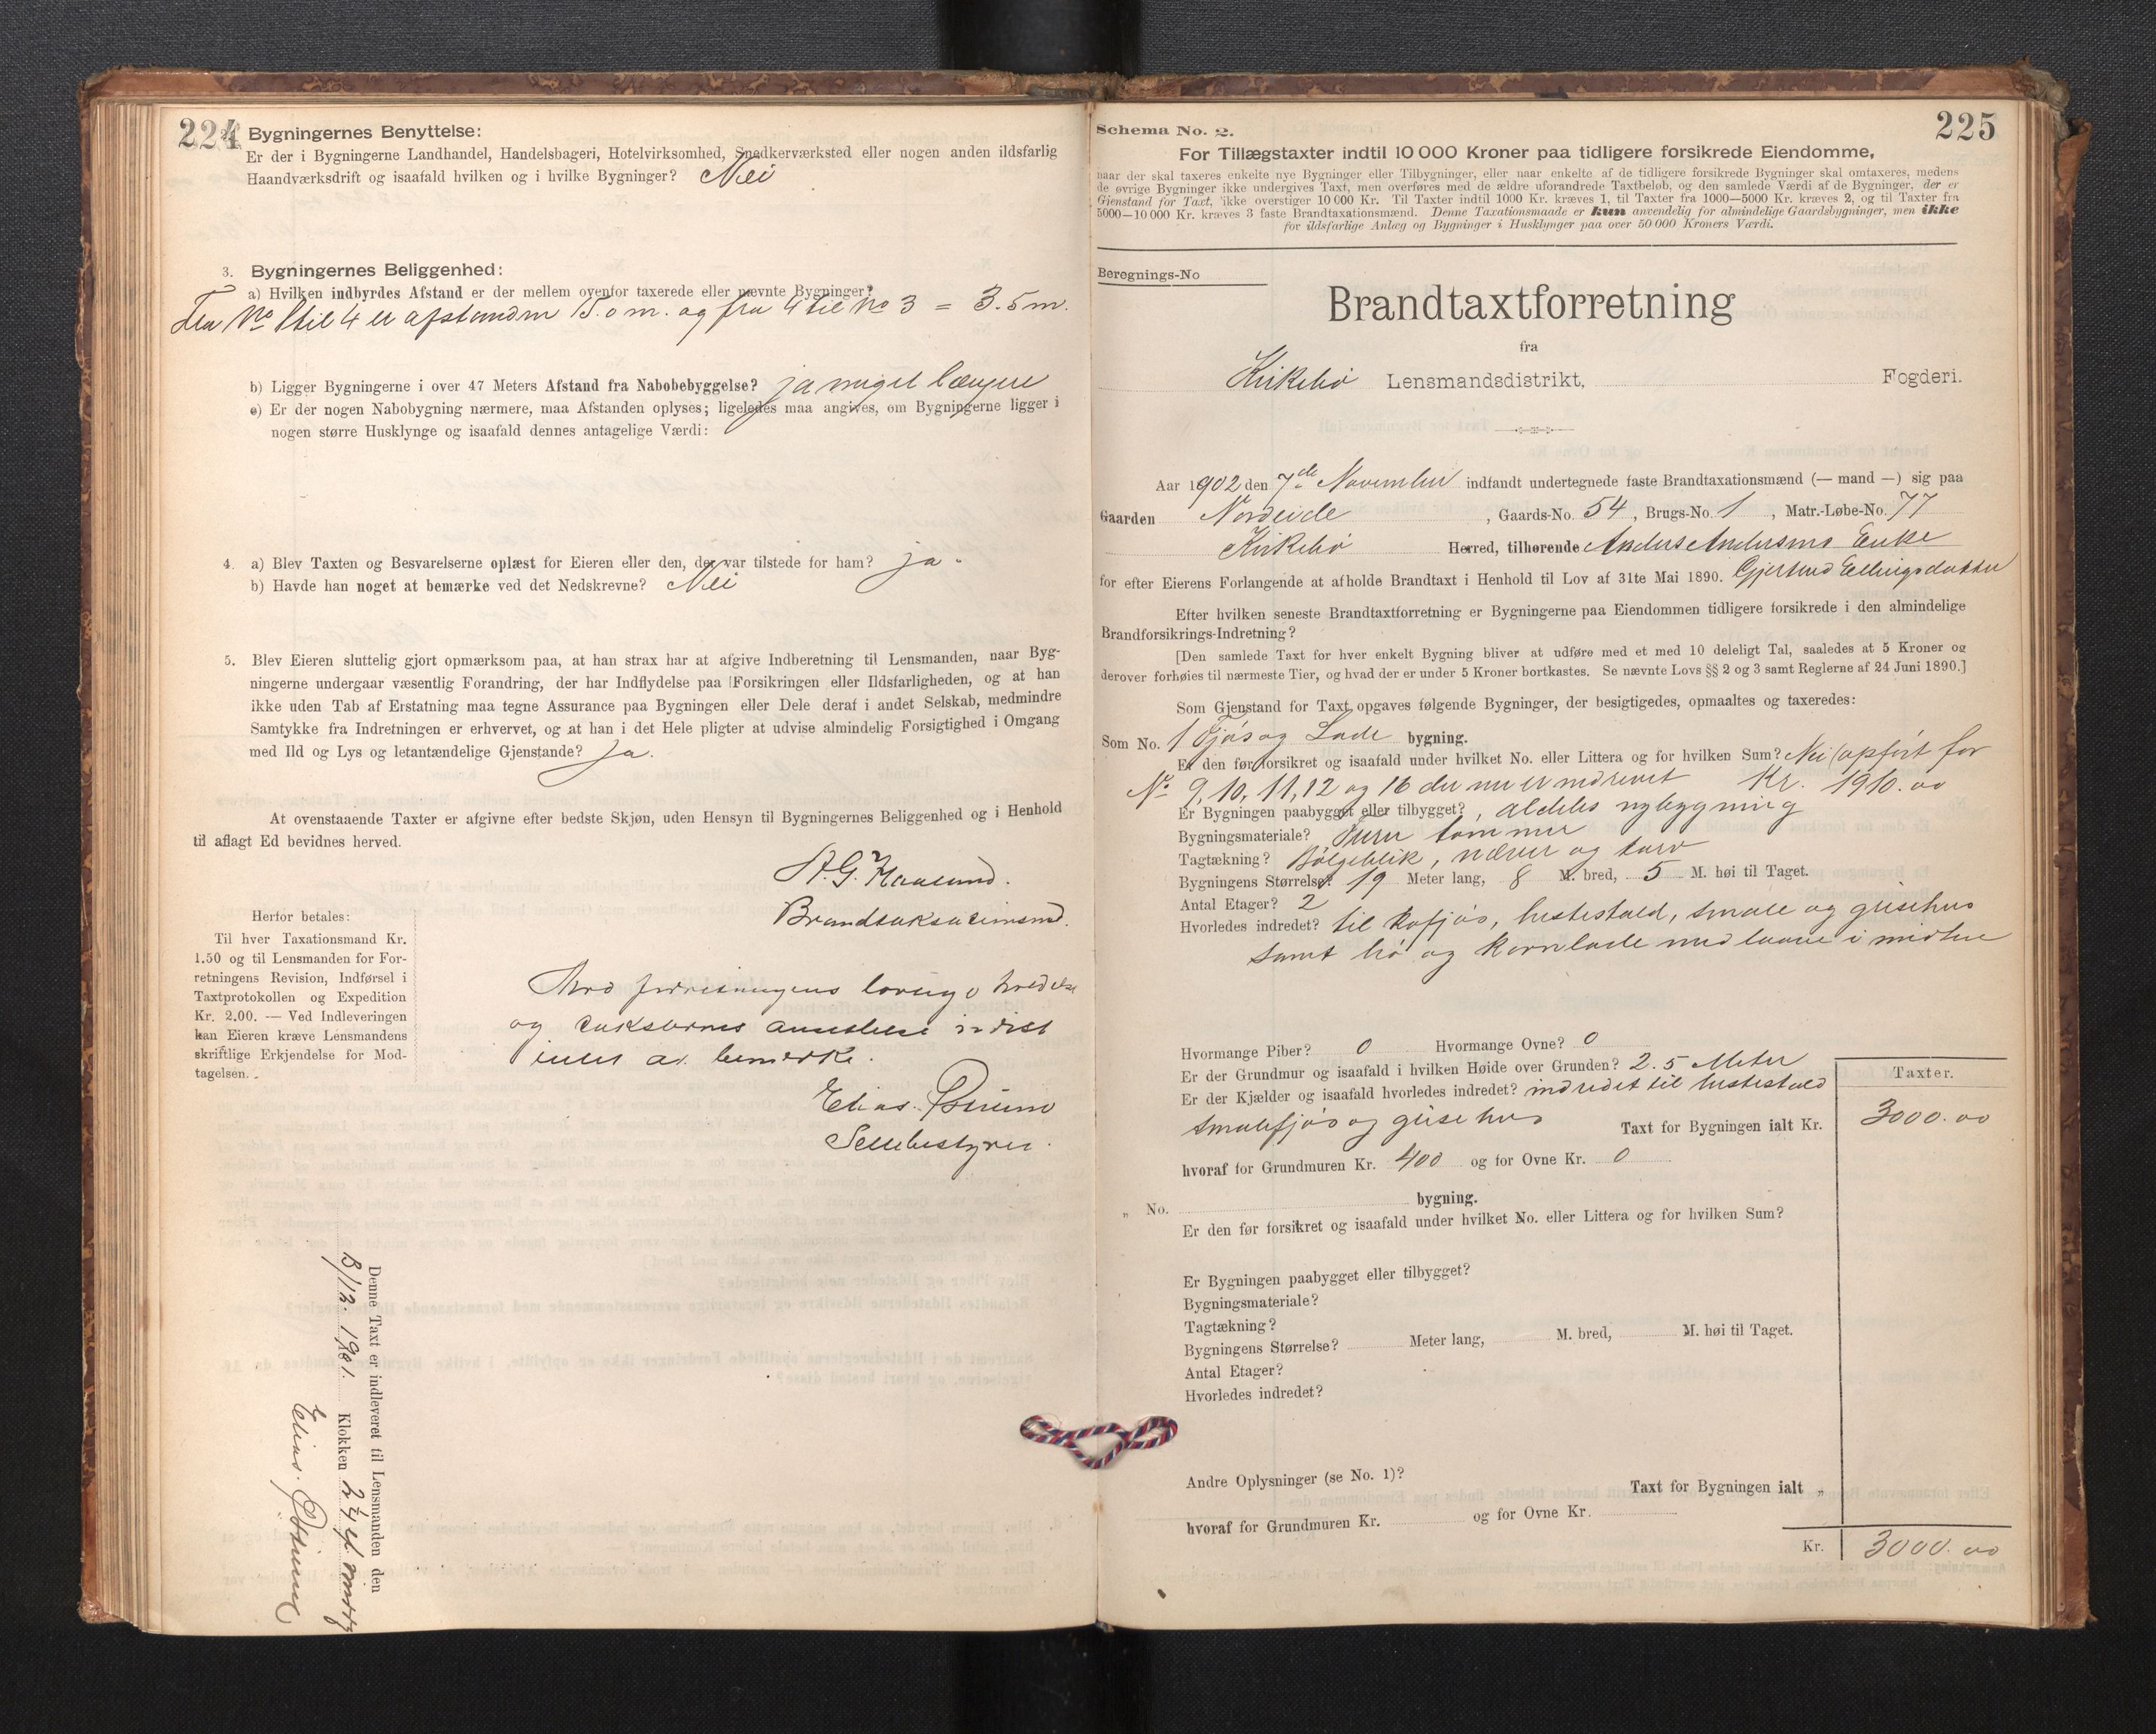 224
Bygningernes Benyttelse:
Er der i Bygningerne Landhandel, Handelsbageri, Hotelvirksomhed, Snedkerværksted eller nogen anden ildsfarlig
Haandværksdrift og isaafald hvilken og i hvilke Bygninger? Nei
3. Bygningernes Beliggenhed:
a) Hvilken indbyrdes Afstand er der mellem ovenfor taxerede eller nævnte Bygninger?
Fra No 1 til 4 er afstanden 15.0 m. og fra 4 til No 3 = 3.5 m.
b) Ligger Bygningerne i over 47 Meters Afstand fra Nabobebyggelse? ja meget længere
c) Er der nogen Nabobygning nærmere, maa Afstanden oplyses; ligeledes maa angives, om Bygningerne ligger i
nogen større Husklynge og isaafald dennes antagelige Værdi:
4. a) Blev Taxten og Besvarelserne oplæst for Eieren eller den, der var tilstede for ham? ja.
b) Havde han noget at bemærke ved det Nedskrevne? Nei
5. Blev Eieren sluttelig gjort opmærksom paa, at han strax har at afgive Indberetning til Lensmanden, naar Byg-
ningerne undergaar væsentlig Forandring, der har Indflydelse paa Forsikringen eller Ildsfarligheden, og at han
ikke uden Tab af Erstatning maa tegne Assurance paa Bygningen eller Dele deraf i andet Selskab, medmindre
Samtykke fra Indretningen er erhvervet, og at han i det Hele pligter at udvise almindelig Forsigtighed i Omgang
med Ild og Lys og letantændelige Gjenstande? Ja.
At ovenstaaende Taxter er afgivne efter bedste Skjøn, uden Hensyn til Bygningernes Beliggenhed og i Henhold
til aflagt Ed bevidnes herved.
Brandtaksationsmd.
Herfor betales:
Til hver Taxationsmand Kr.
1.50 og til Lensmanden for For-
retningens Revision, Indførsel i
Taxtprotokollen og Expedition
Kr. 2.00. — Ved Indleveringen
kan Eieren kræve Lensmandens
skriftlige Erkjendelse for Mod-
tagelsen.
Mod forretningens lovlige
og taksternes ansættelse
intet at bemerke.
Elias
Denne Taxt er indleveret til Lensmanden den
3/12. 1901. Klokken
Elias
225
Schema No. 2.
For Tillægstaxter indtil 10 000 Kroner paa tidligere forsikrede Eiendomme,
naar der skal taxeres enkelte nye Bygninger eller Tilbygninger, eller naar enkelte af de tidligere forsikrede Bygninger skal omtaxeres, medens
de øvrige Bygninger ikke undergives Taxt, men overføres med de ældre uforandrede Taxtbeløb, og den samlede Værdi af de Bygninger, der er
Gjenstand for Taxt, ikke overstiger 10 000 Kr. Til Taxter indtil 1000 Kr. kræves 1, til Taxter fra 1000—5000 Kr. kræves 2, og til Taxter fra
5000—10 000 Kr. kræves 3 faste Brandtaxationsmænd. Denne Taxationsmaade er kun anvendelig for almindelige Gaardsbygninger, men ikke
for ildsfarlige Anlæg og Bygninger i Husklynger paa over 50 000 Kroners Værdi.
Beregnings-No
Brandtaxtforretning
fra
Kirkebø Lensmandsdistrikt, Fogderi.
Aar 1902 den 7de November indfandt undertegnede faste Brandtaxationsmænd (— mand —) sig paa
Gaarden Nordeide, Gaards-No. 54, Brugs-No. 1, Matr.-Løbe-No. 77
Kirkebø Herred, tilhørende Anders Andersens Enke
for efter Eierens Forlangende at afholde Brandtaxt i Henhold til Lov af 31te Mai 1890. Gjertrud Ellingsdatter
Efter hvilken seneste Brandtaxtforretning er Bygningerne paa Eiendommen tidligere forsikrede i den almindelige
Brandforsikrings-Indretning?
[Den samlede Taxt for hver enkelt Bygning bliver at udføre med et med 10 deleligt Tal, saaledes at 5 Kroner og
derover forhøies til nærmeste Tier, og hvad der er under 5 Kroner bortkastes. Se nævnte Lovs §§ 2 og 3 samt Reglerne af 24 Juni 1890.]
Som Gjenstand for Taxt opgaves følgende Bygninger, der besigtigedes, opmaaltes og taxeredes:
Som No. 1 Fjøs og Lade bygning.
Er den før forsikret og isaafald under hvilket No. eller Littera og for hvilken Sum? Nei (opført for
No 9, 10, 11, 12 og 16 der nu er nedrevet Kr. 1910.00
Er Bygningen paabygget eller tilbygget?, aldeles nybygning
Bygningsmateriale? Furu tømmer
Tagtækning? Bølgeblik, næver og torv
Bygningens Størrelse? 19 Meter lang, 8 M. bred, 5 M. høi til Taget.
Antal Etager? 2
Hvorledes indredet? til kofjøs, hestestald, smale og grisehus
samt hø og kornlade med laave i midten
Hvormange Piber? 0 Hvormange Ovne? 0
Er der Grundmur og isaafald i hvilken Høide over Grunden? 2.5 Meter
Er der Kjælder og isaafald hvorledes indredet? indredet til hestestald
smalefjøs og grisehus Taxt for Bygningen ialt Kr.
Taxter.
3000.00
hvoraf for Grundmuren Kr. 400 og for Ovne Kr. 0
„ No. bygning.
Er den før forsikret og isaafald under hvilket No. eller Littera og for hvilken Sum?
Er Bygningen paabygget eller tilbygget?
Bygningsmateriale?
Tagtækning?
Bygningens Størrelse? Meter lang, M. bred, M. høi til Taget.
Antal Etager?
Hvorledes indredet?
Andre Oplysninger (se No. 1)? Taxt for Bygningen ialt „
hvoraf for Grundmuren Kr. og for Ovne Kr.
Kr. 3000.00